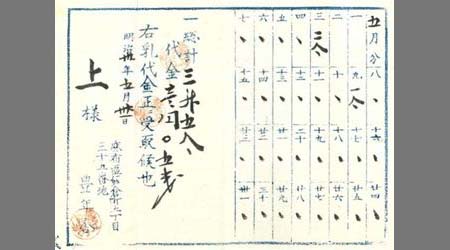 五月分 八 十六 廿四
一 九 十七 廿五
二 十 十八 廿六
三 十一 十九 廿七
四 十二 二十 廿八
五 十三 廿一 廿九
六 十四 廿二 三十
七 十五 廿三 卅一
一總計三升五
代金壱円〇五
右乳代金正受取候也
明治 年五月卅一日
麻布區飯倉町 丁目
三十 番地
豊年
上様